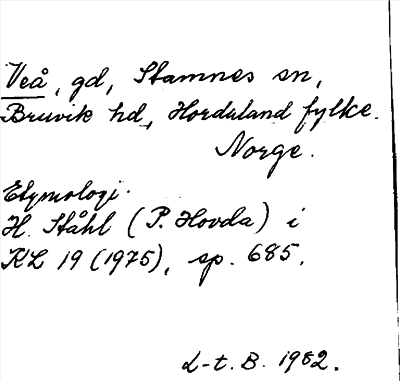 Veå, gd, Stamnes sn,
Bruvik hd, Hordaland fylke.
Norge.
Etymologi.
H. Ståhl (P. Hovda) i
KL 19 (1975), sp. 685.
L-t. B. 1982.